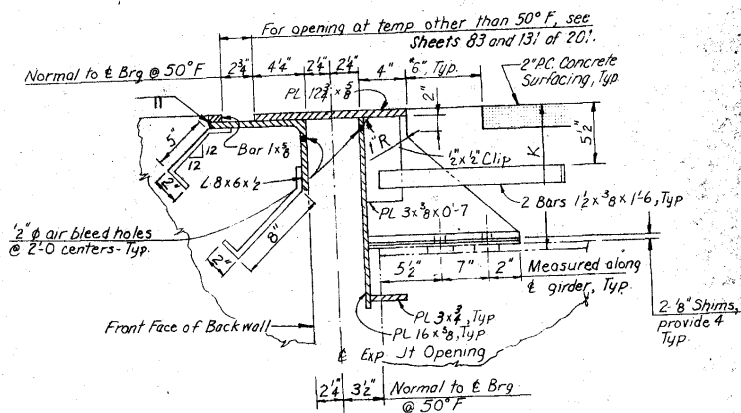 For opening at temp other than 50°F, see
Sheets 83 and 131 of 201.
Normal to ℄ Brg @ 50°F
2 3/4" 4 1/4" 2 1/4" 2 1/4" 4" "6", Typ.
2" P.C. Concrete
Surfacing, Typ.
PL 12 3/4 x 5/8
2"
5 1/2"
K
11
5"
12
12
2"
Bar 1 x 5/8
1" R
1/2" x 1/2" Clip
L 8 x 6 x 1/2
2 Bars 1 1/2 x 3/8 x 1'-6, Typ
PL 3 x 3/8 x 0'-7
1/2" φ air bleed holes
@ 2'-0 centers - Typ.
8"
2"
5 1/2" 7" 2"
Measured along
℄ girder, Typ.
2-1/8" Shims,
provide 4
Typ.
PL 3 x 3/4, Typ
PL 16 x 5/8, Typ
Front Face of Backwall
℄ Exp Jt Opening
2 1/4" 3 1/2"
Normal to ℄ Brg
@ 50°F